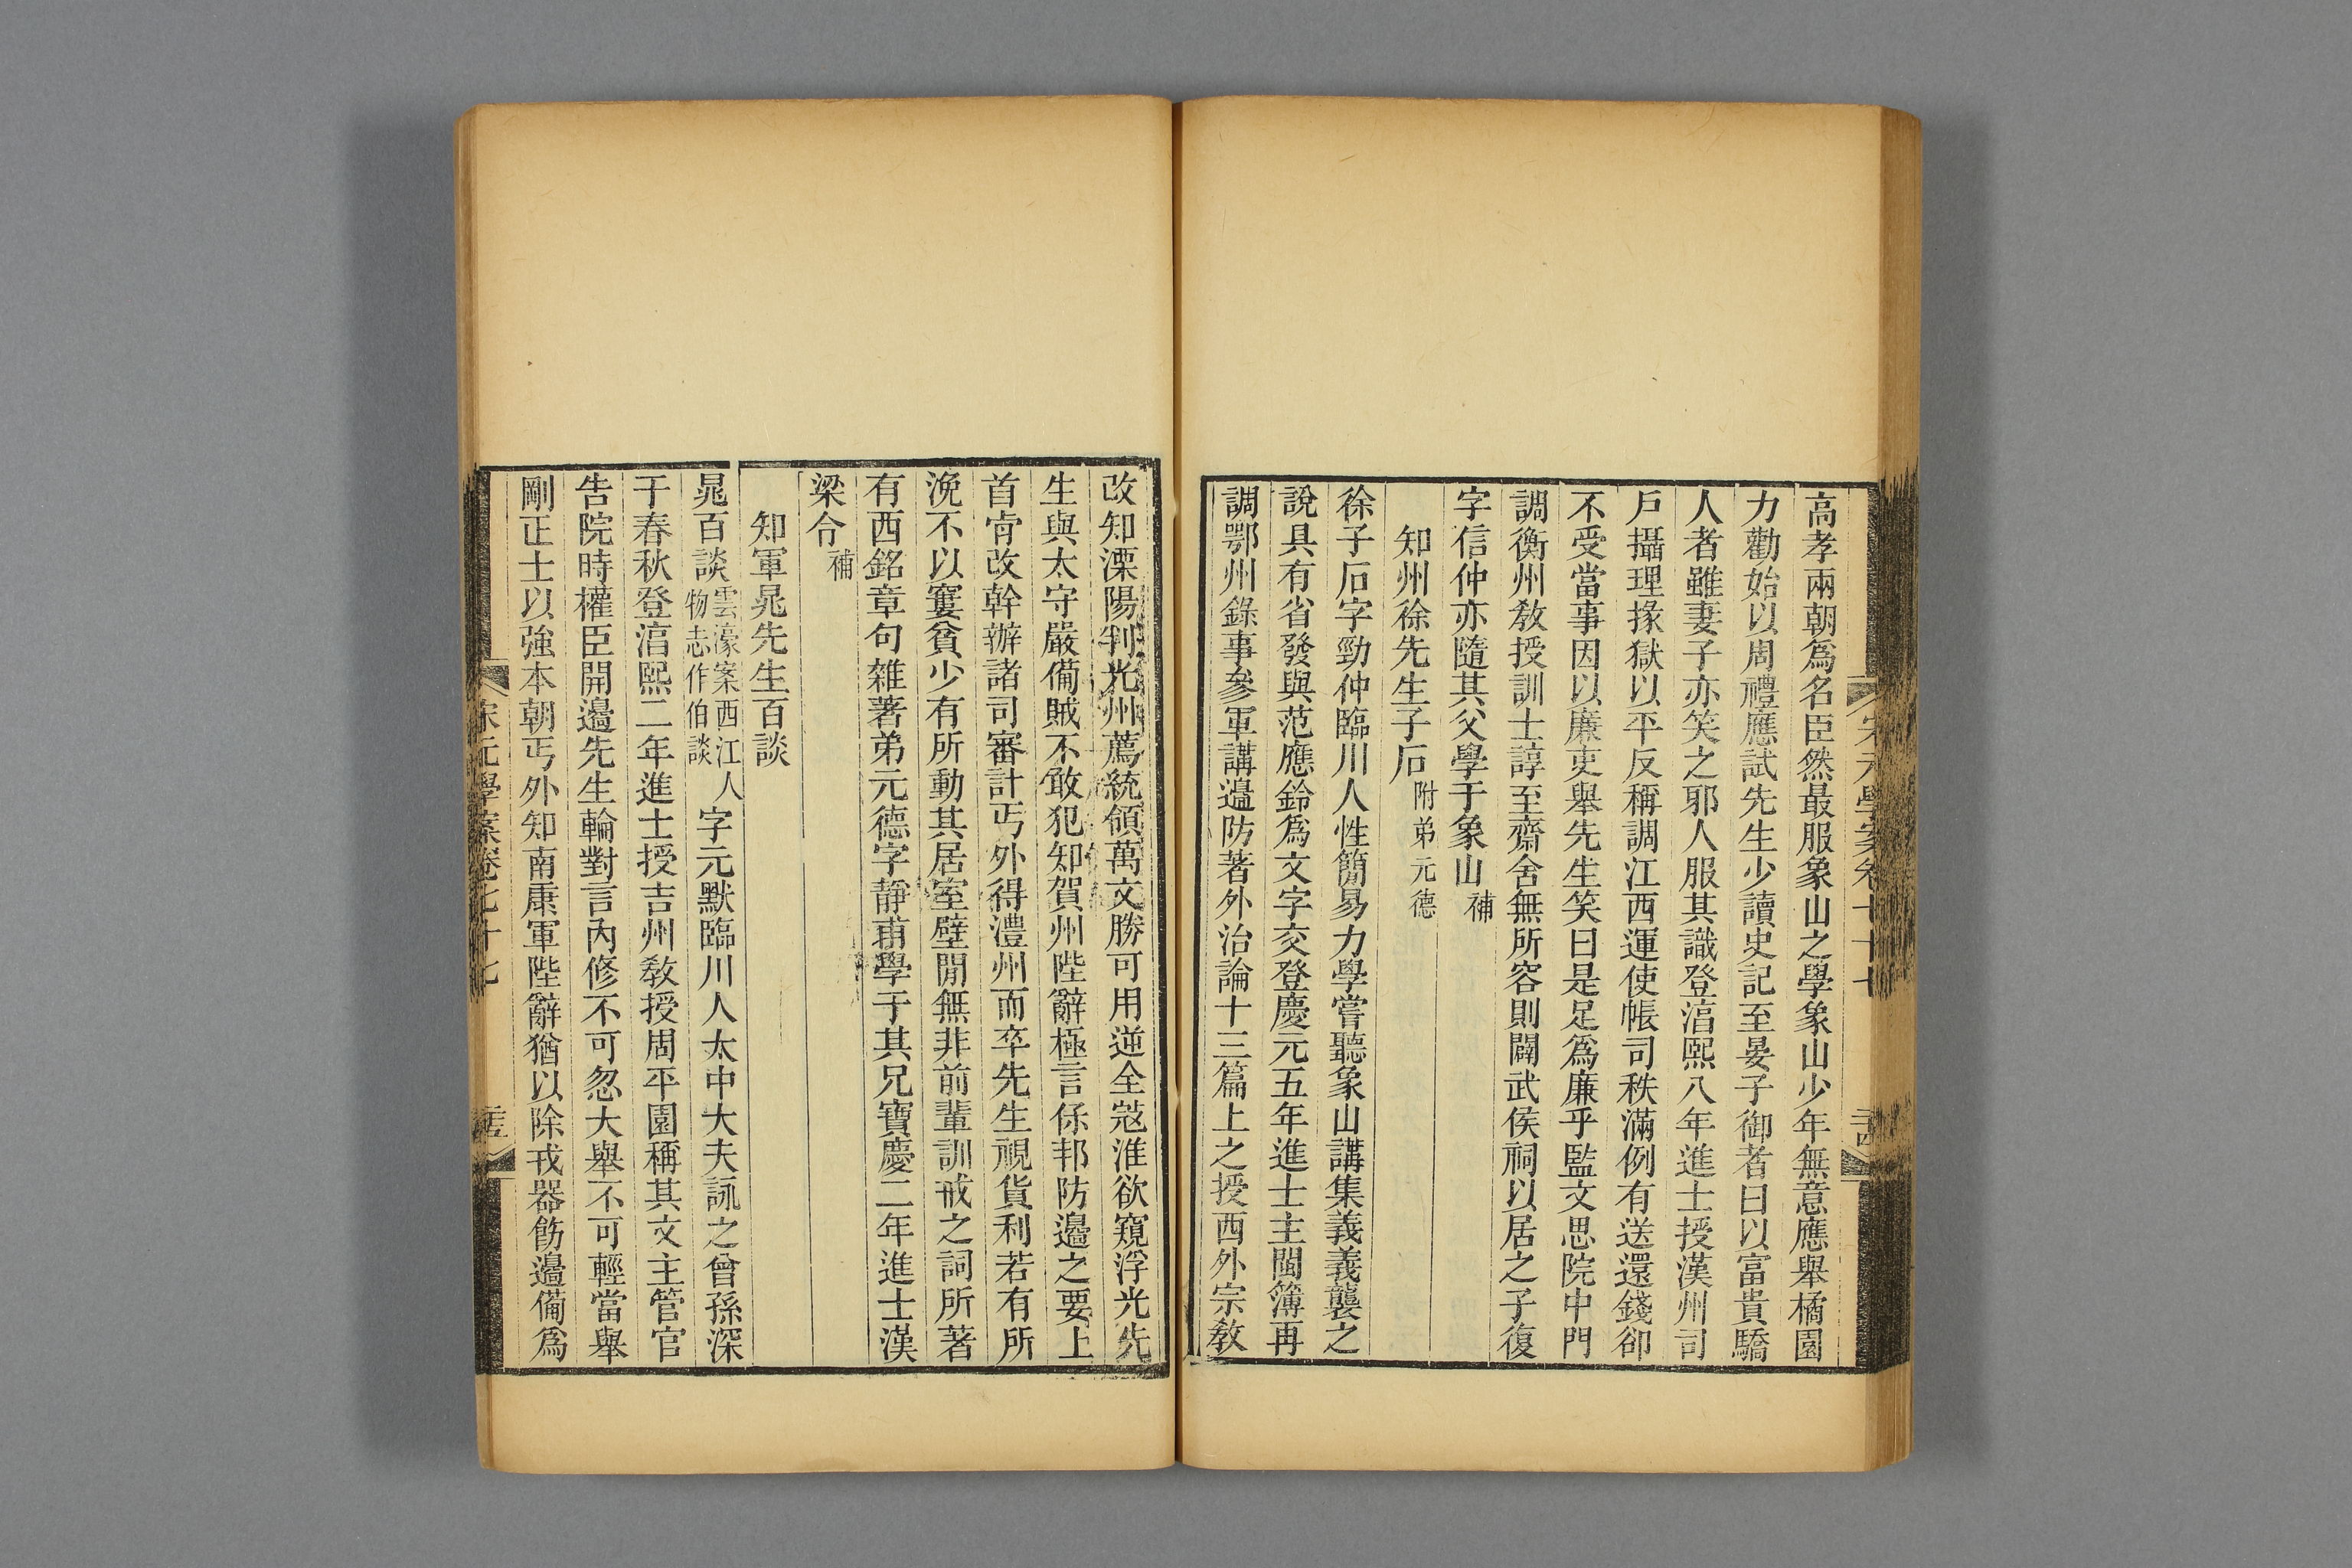 高孝兩朝爲名臣然最服象山之學象山少年無意應舉橘園
力勸始以周禮應試先生少讀史記至晏子御者曰以富貴驕
人者雖妻子亦笑之耶人服其識登湻熙八年進士授漢州司
戶攝理掾獄以平反稱調江西運使帳司秩滿例有送還錢卻
不受當事因以廉吏舉先生笑曰是足爲廉乎監文思院中門
調衡州敎授訓士諄至齋舍無所容則闢武侯祠以居之子復
字信仲亦隨其父學于象山補
知州徐先生子石附弟元德
徐子石字勁仲臨川人性簡易力學嘗聽象山講集義義襲之
說具有省發與范應鈴爲文字交登慶元五年進士主閩簿再
調鄂州錄事參軍講邊防著外治論十三篇上之授西外宗敎
改知溧陽判光州薦統領萬文勝可用逆全寇淮欲窺浮光先
生與太守嚴備賊不敢犯知賀州陛辭極言係邦防邊之要上
首肯改幹辦諸司審計丐外得澧州而卒先生視貨利若有所
浼不以窶貧少有所動其居室壁閒無非前輩訓戒之詞所著
有西銘章句雜著弟元德字靜甫學于其兄寶慶二年進士漢
梁令補
知軍晁先生百談
晁百談雲濠案西江人
物志作伯談字元默臨川人太中大夫詠之曾孫深
于春秋登湻熙二年進士授吉州敎授周平園稱其文主管官
告院時權臣開邊先生輪對言內修不可忽大舉不可輕當舉
剛正士以強本朝丐外知南康軍陛辭猶以除戎器飭邊備爲
宋元學案卷七十七